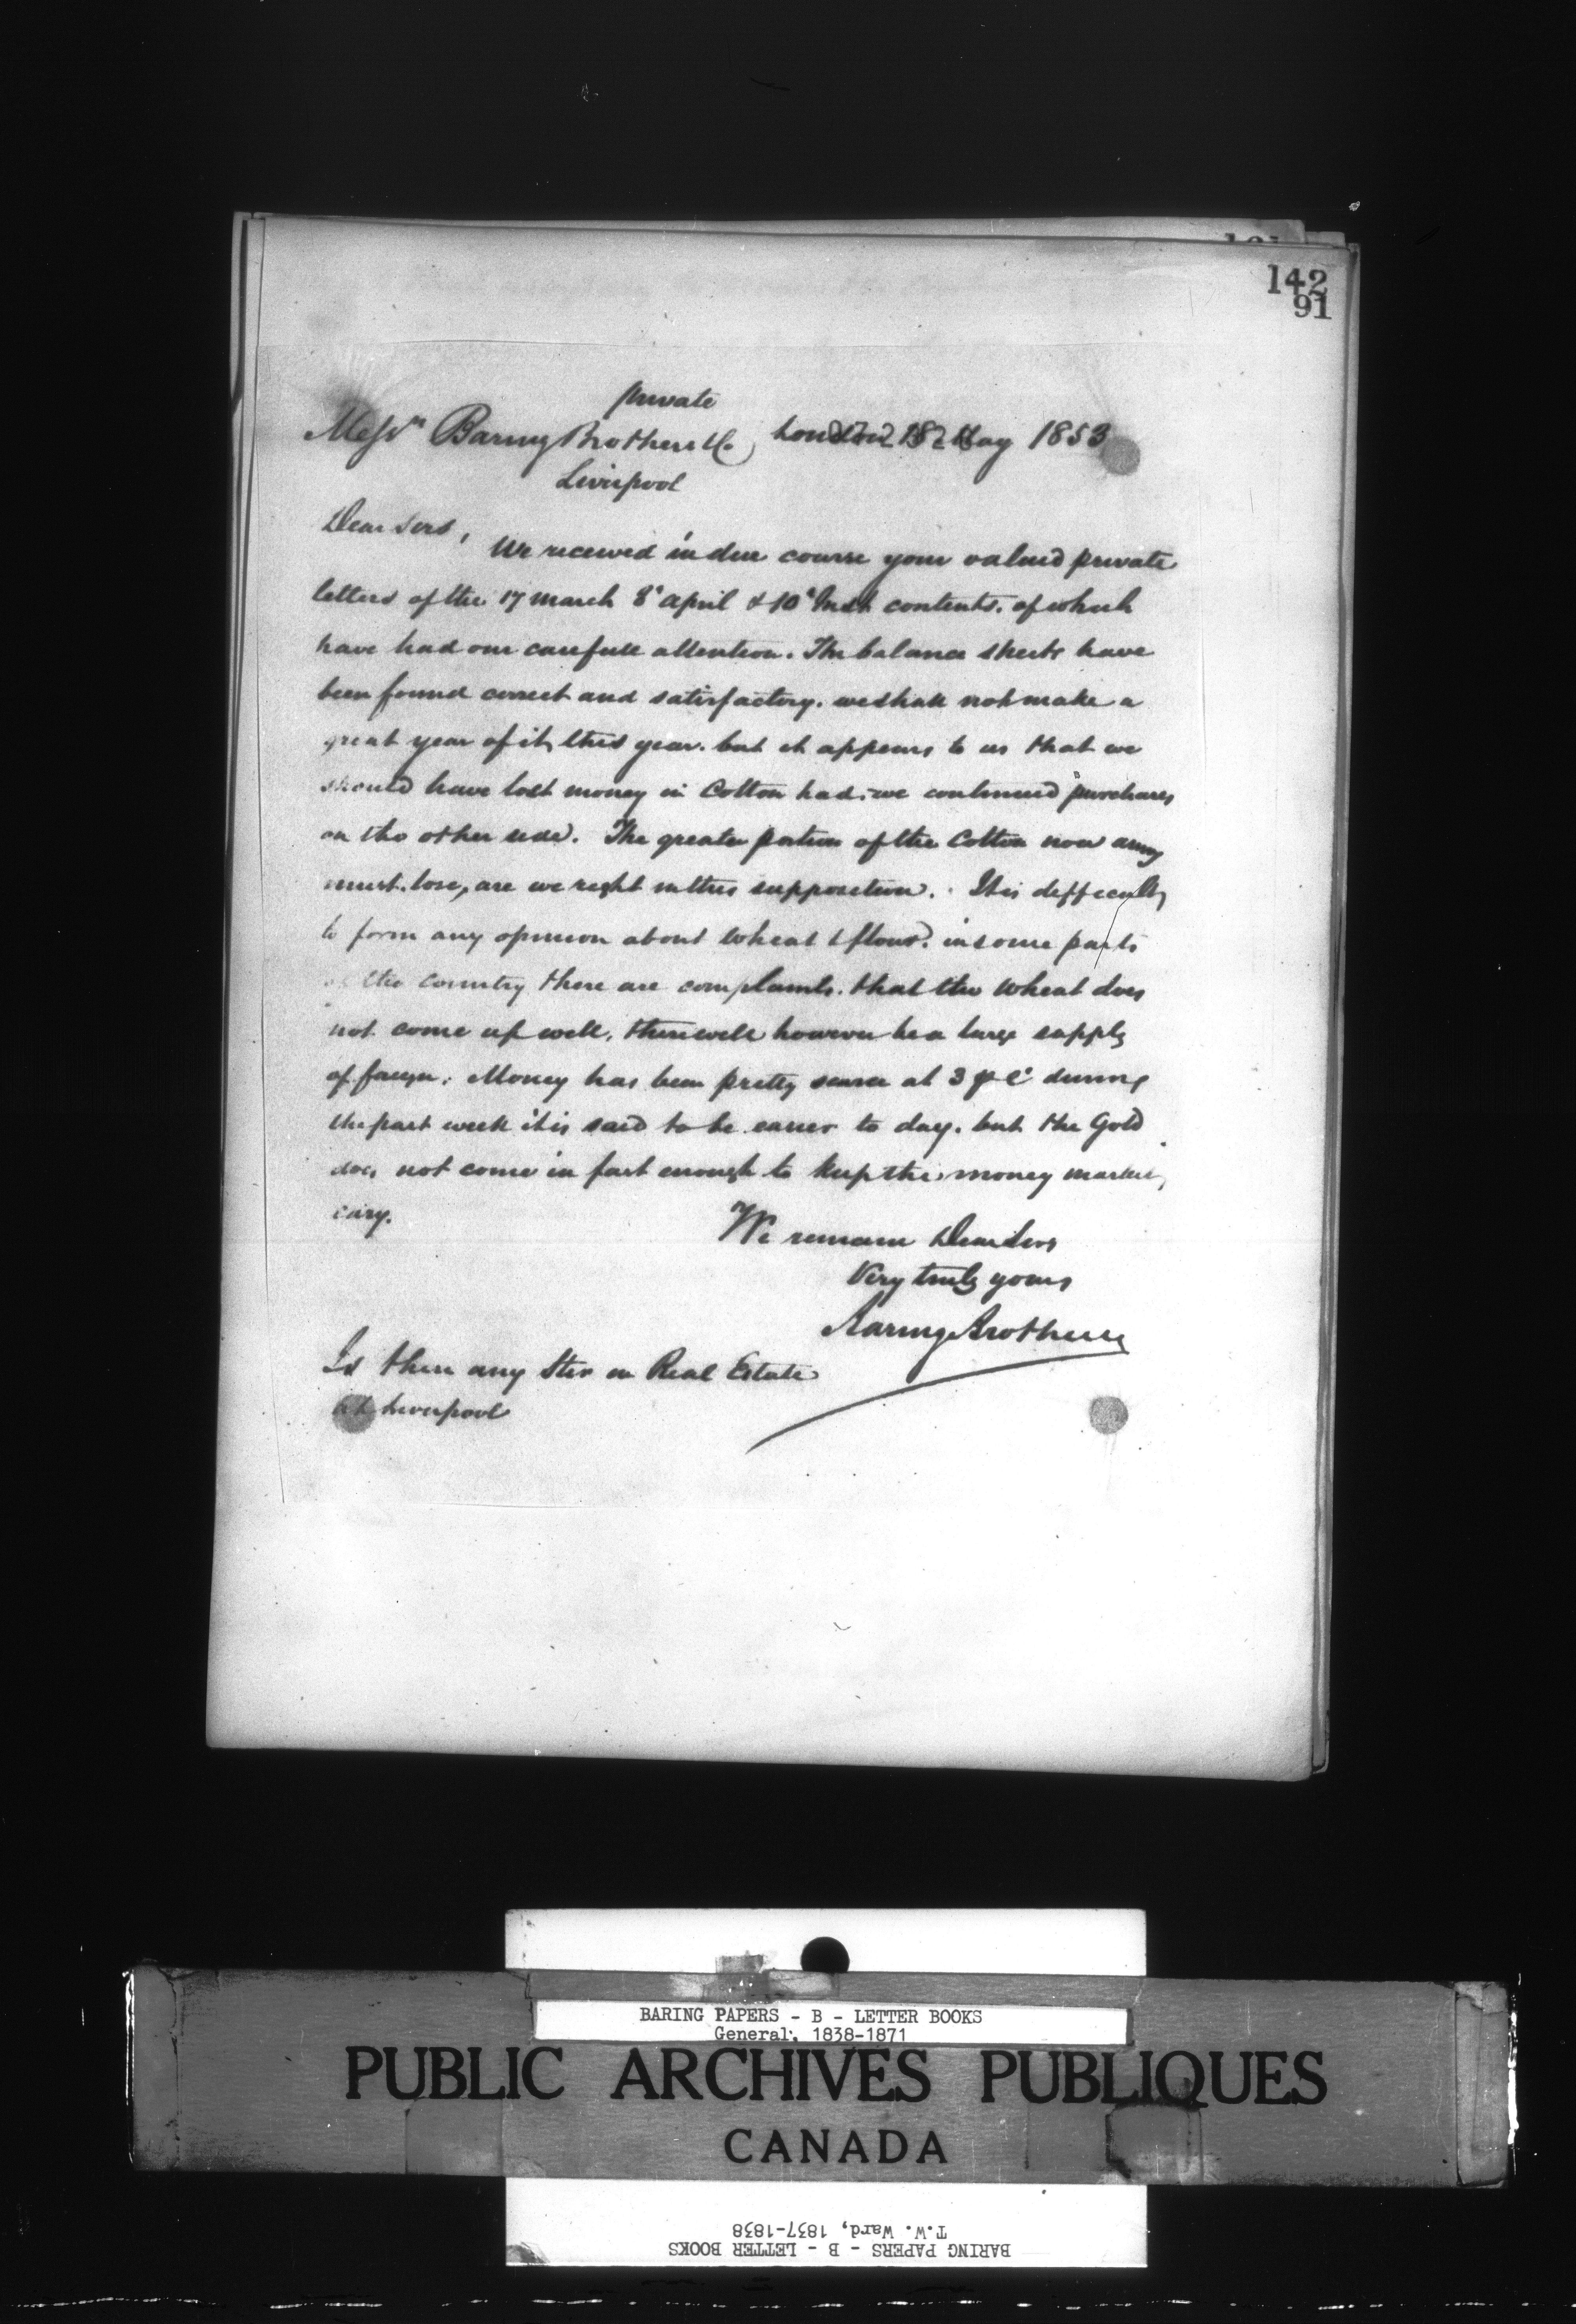 142
91
private
Messrs Baring Brothers & Co London 18 May 1853
Liverpool
Dear Sirs,
We received in due course your valued private
letters of the 17 march 8' april & 10' Inst contents. of which
have had our carefull attention. The balance sheets have
been found correct and satisfactory. we shall not make a
great year of it this year. but it appears to us that we
should have lost money in Cotton had we continued purchases
on the other side. The greater portion of the Cotton now
must lose, are we right in this supposition. It is difficult
to form any opinion about wheat & flour. in some parts
of the country there are complaints. that the wheat does
not come up well, there will however be a large supply
of foreign. Money has been pretty scarce at 3 p Ct during
the past week it is said to be easier to day. but the Gold
does not come in fast enough to keep the money market
easy.
We remain Dear Sirs
Very truly yours
Baring Brothers
Is there any Stir in Real Estate
at Liverpool
BARING PAPERS - B - LETTER BOOKS
General, 1838-1871
PUBLIC ARCHIVES PUBLIQUES
CANADA
T.W. Ward, 1837-1838
BARING PAPERS - B - LETTER BOOKS